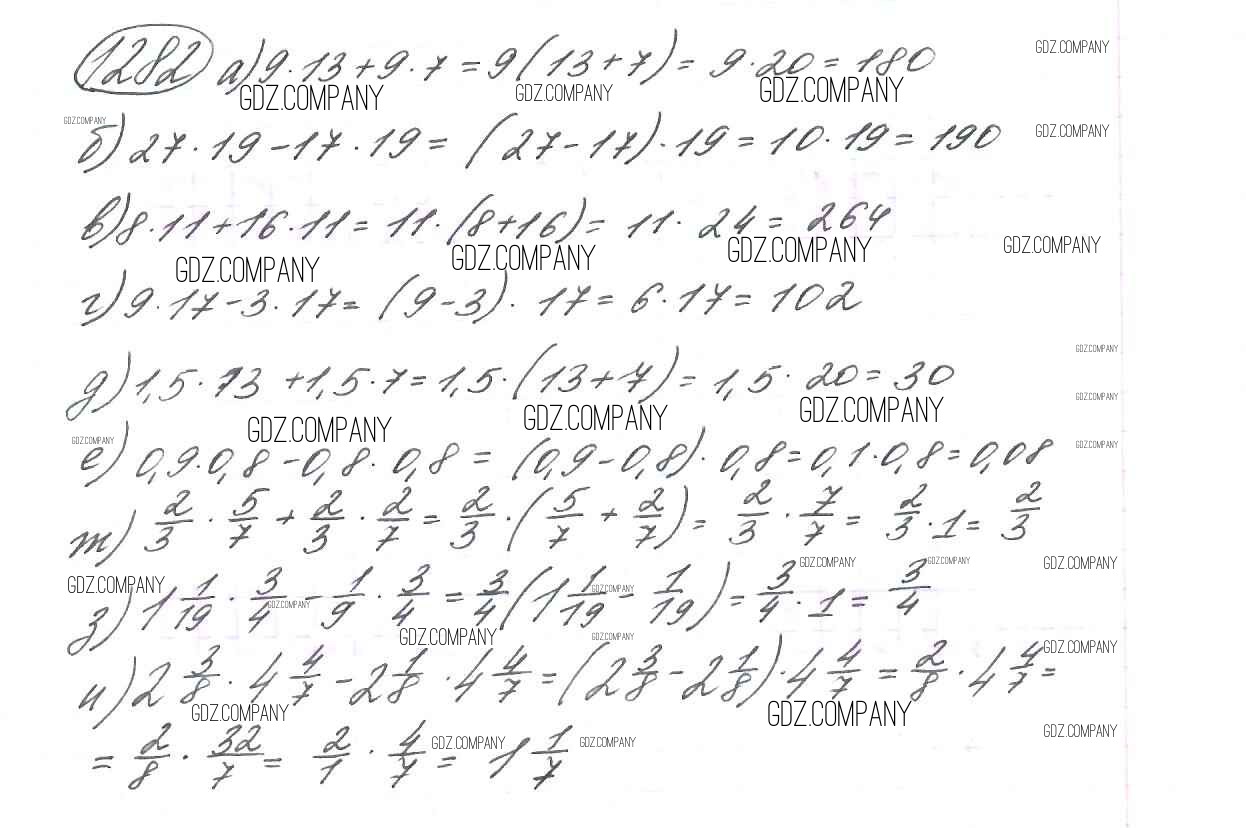 1282 а) 9·13+9·7=9(13+7)=9·20=180
GDZ.COMPANY
GDZ.COMPANY GDZ.COMPANY GDZ.COMPANY
GDZ.COMPANY
б) 27·19-17·19=(27-17)·19=10·19=190
GDZ.COMPANY
в) 8·11+16·11=11·(8+16)=11·24=264
GDZ.COMPANY GDZ.COMPANY GDZ.COMPANY GDZ.COMPANY
г) 9·17-3·17=(9-3)·17=6·17=102
GDZ.COMPANY
д) 1,5·13+1,5·7=1,5·(13+7)=1,5·20=30
GDZ.COMPANY
GDZ.COMPANY GDZ.COMPANY GDZ.COMPANY
GDZ.COMPANY GDZ.COMPANY
е) 0,9·0,8-0,8·0,8=(0,9-0,8)·0,8=0,1·0,8=0,08
ж) 2/3·5/7+2/3·2/7=2/3·(5/7+2/7)=2/3·7/7=2/3·1=2/3
GDZ.COMPANY GDZ.COMPANY GDZ.COMPANY GDZ.COMPANY
з) 1 1/19·3/4-1/9·3/4=3/4(1 1/19-1/19)=3/4·1=3/4
GDZ.COMPANY GDZ.COMPANY
GDZ.COMPANY GDZ.COMPANY GDZ.COMPANY
и) 2 3/8·4 4/7-2 1/8·4 4/7=(2 3/8-2 1/8)·4 4/7=2/8·4 4/7=
GDZ.COMPANY GDZ.COMPANY
=2/8·32/7=2/1·4/7=1 1/7
GDZ.COMPANY GDZ.COMPANY GDZ.COMPANY